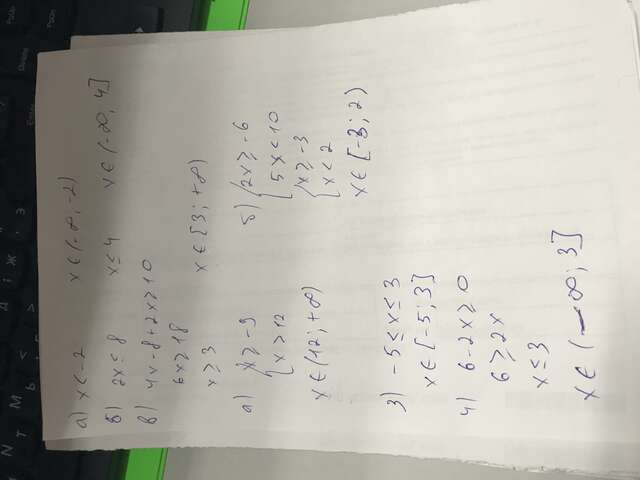 а) x<-2 x∈(-∞; -2)
б) 2x≤8 x≤4 x∈(-∞; 4]
в) 4x-8+2x≥10
6x≥18
x≥3 x∈[3;+∞)
а) { x≥-9
x>12
x∈(12;+∞)
б) { 2x≥-6
5x<10
{ x≥-3
x<2
x∈[-3;2)
3) -5≤x≤3
x∈[-5;3]
4) 6-2x≥0
6≥2x
x≤3
x∈(-∞;3]